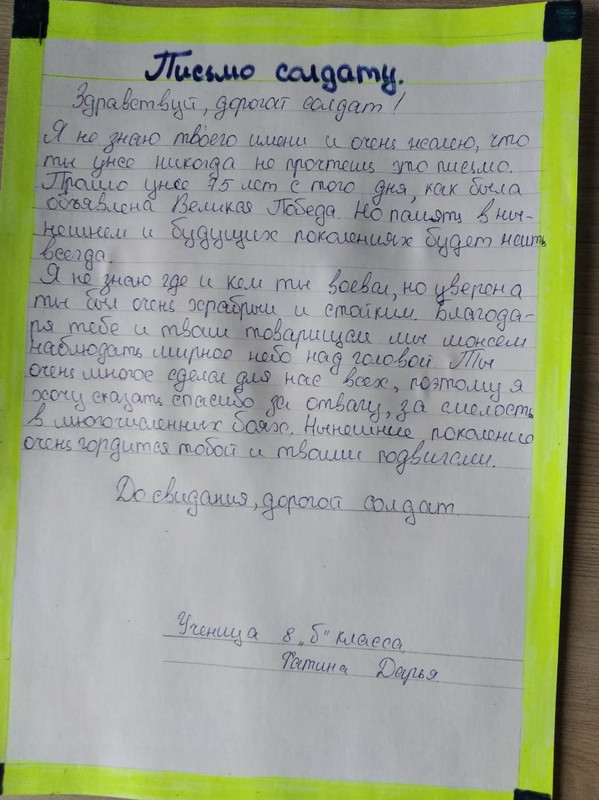 Письмо солдату.
Здравствуй, дорогой солдат!
Я не знаю твоего имени и очень жалею, что
ты уже никогда не прочтешь это письмо.
Прошло уже 75 лет с того дня, как была
объявлена Великая Победа. Но память в ны-
нешнем и будущих поколениях будет жить
всегда.
Я не знаю где и кем ты воевал, но уверена
ты был очень храбрым и стойким. Благода-
ря тебе и твоим товарищам мы можем
наблюдать мирное небо над головой. Ты
очень многое сделал для нас всех, поэтому я
хочу сказать спасибо за отвагу, за смелость
в многочисленных боях. Нынешнее поколение
очень гордится тобой и твоими подвигами.
До свидания, дорогой солдат.
Ученица 8 „б" класса
Дарья